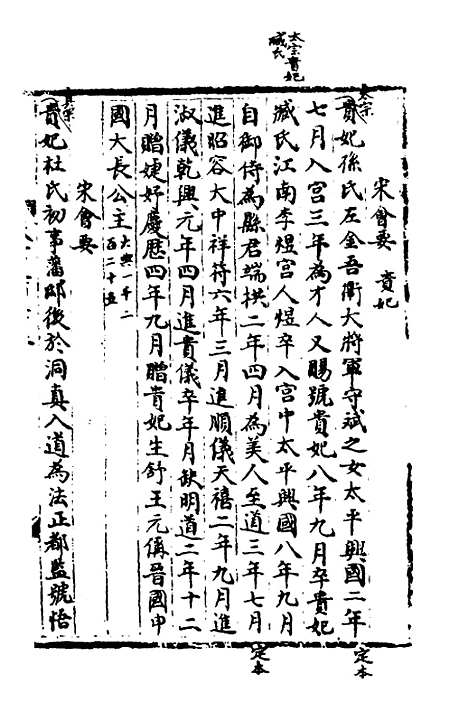 太宗貴妃
臧氏
宋會要 貴妃
太宗
貴妃孫氏左金吾衛大將軍守斌之女太平興國二年
七月入宫三年為才人又賜號貴妃八年九月卒貴妃
臧氏江南李煜宫人煜卒入宫中太平興國八年九月
自御侍為縣君端拱二年四月為美人至道三年七月
進昭容大中祥符六年三月進順儀天禧二年九月進
淑儀乾興元年四月進貴儀卒年月缺明道二年十二
月贈婕妤慶歷四年九月贈貴妃生舒王元偁晉國申
國大長公主大典一千二
百二十五
宋會要
真宗
貴妃杜氏初事藩邸後於洞真入道為法正都監號悟
定本
定本